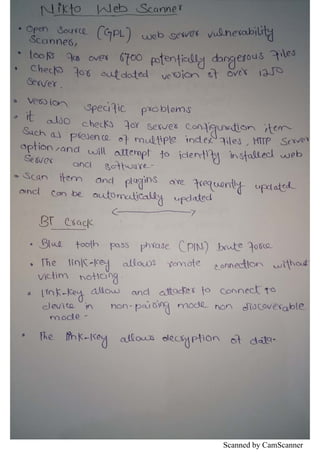 Nikto Web Scanner
• Open Source (GPL) web server vulnerability
Scannes,
• looks for over 6700 potentially dangerous files
• Checks for outdated version of over 1250
Server.
• version specific problems
• it also checks for server configuration item
Such as presence of multiple index files, HTTP Server
option, and will attempt to identify installed web
Server and software.
• Scan item and plugins are frequently updated
and can be automatically updated
BT Crack
• Blue tooth pass phrase (PIN) brute force
• The link-key allows remote connection without
victim noticing
• link-key allow and attacker to connect to
device in non-pairing mode non discoverable
mode -
• The link-key allows decryption of data.
Scanned by CamScanner